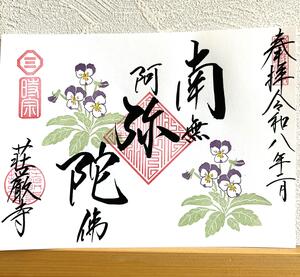 奉拝 令和八年二月
南無
阿弥
陀佛
荘厳寺
時宗